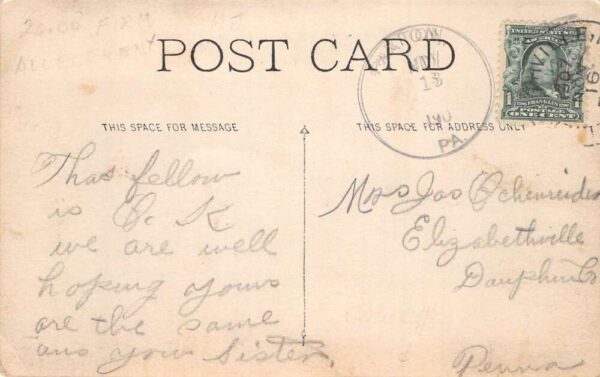 20.00 FIRM NJ
ALLEGHENY
POST CARD
NOV
13
190
PA.
UNITED STATES
FRANKLIN
1 ONE CENT 1
THIS SPACE FOR MESSAGE
THIS SPACE FOR ADDRESS ONLY
Thas fellow
is O. K
we are well
hoping yours
are the same
ans your Sister.
Mrs Jas
Elizabethville
Dauphin Co
Penna